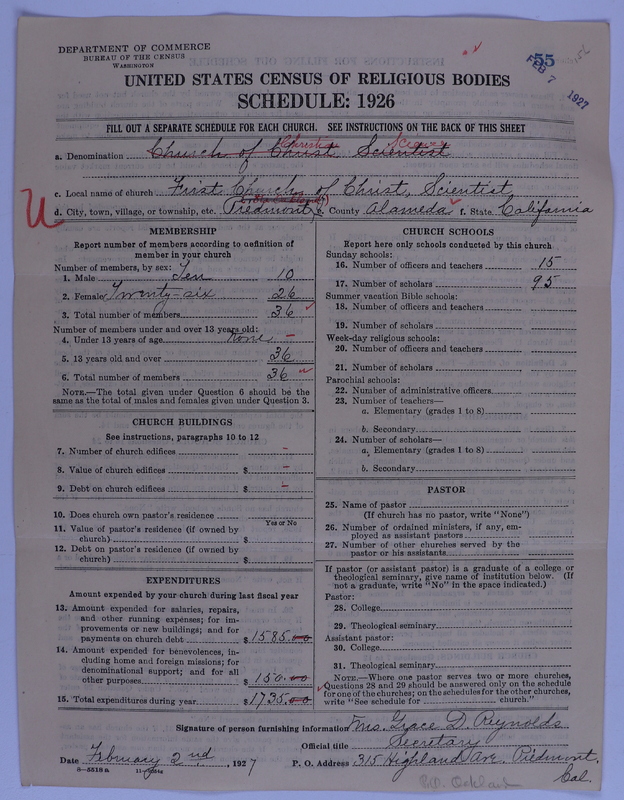 DEPARTMENT OF COMMERCE
BUREAU OF THE CENSUS
WASHINGTON
55
FEB 7 1927
156
UNITED STATES CENSUS OF RELIGIOUS BODIES
SCHEDULE: 1926
FILL OUT A SEPARATE SCHEDULE FOR EACH CHURCH. SEE INSTRUCTIONS ON THE BACK OF THIS SHEET
a. Denomination Church of Christ Scientist
c. Local name of church First Church of Christ, Scientist
d. City, town, village, or township, etc. Piedmont e. County Alameda f. State California
MEMBERSHIP
Report number of members according to definition of
member in your church
Number of members, by sex:
1. Male Ten 10
2. Female Twenty-six 26
3. Total number of members 36
Number of members under and over 13 years old:
4. Under 13 years of age none –
5. 13 years old and over 36
6. Total number of members 36
NOTE.—The total given under Question 6 should be the
same as the total of males and females given under Question 3.
CHURCH BUILDINGS
See instructions, paragraphs 10 to 12
7. Number of church edifices –
8. Value of church edifices $ –
9. Debt on church edifices $ –
10. Does church own pastor's residence
Yes or No
11. Value of pastor's residence (if owned by
church) $
12. Debt on pastor's residence (if owned by
church) $
EXPENDITURES
Amount expended by your church during last fiscal year
13. Amount expended for salaries, repairs,
and other running expenses; for im-
provements or new buildings; and for
payments on church debt $ 1585.00
14. Amount expended for benevolences, in-
cluding home and foreign missions; for
denominational support; and for all
other purposes $ 150.00
15. Total expenditures during year $ 1735.00
CHURCH SCHOOLS
Report here only schools conducted by this church
Sunday schools:
16. Number of officers and teachers 15
17. Number of scholars 95
Summer vacation Bible schools:
18. Number of officers and teachers
19. Number of scholars
Week-day religious schools:
20. Number of officers and teachers
21. Number of scholars
Parochial schools:
22. Number of administrative officers
23. Number of teachers—
a. Elementary (grades 1 to 8)
b. Secondary
24. Number of scholars—
a. Elementary (grades 1 to 8)
b. Secondary
PASTOR
25. Name of pastor
(If church has no pastor, write "None")
26. Number of ordained ministers, if any, em-
ployed as assistant pastors
27. Number of other churches served by the
pastor or his assistants
If pastor (or assistant pastor) is a graduate of a college or
theological seminary, give name of institution below. (If
not a graduate, write "No" in the space indicated.)
Pastor:
28. College
29. Theological seminary
Assistant pastor:
30. College
31. Theological seminary
NOTE.—Where one pastor serves two or more churches,
Questions 28 and 29 should be answered only on the schedule
for one of the churches; on the schedules for the other churches,
write "See schedule for church."
Signature of person furnishing information Mrs. Grace D. Reynolds
Official title Secretary
Date February 2nd, 1927 P. O. Address 315 Highland Ave. Piedmont,
Cal.
8—5518a
P.O. Oakland